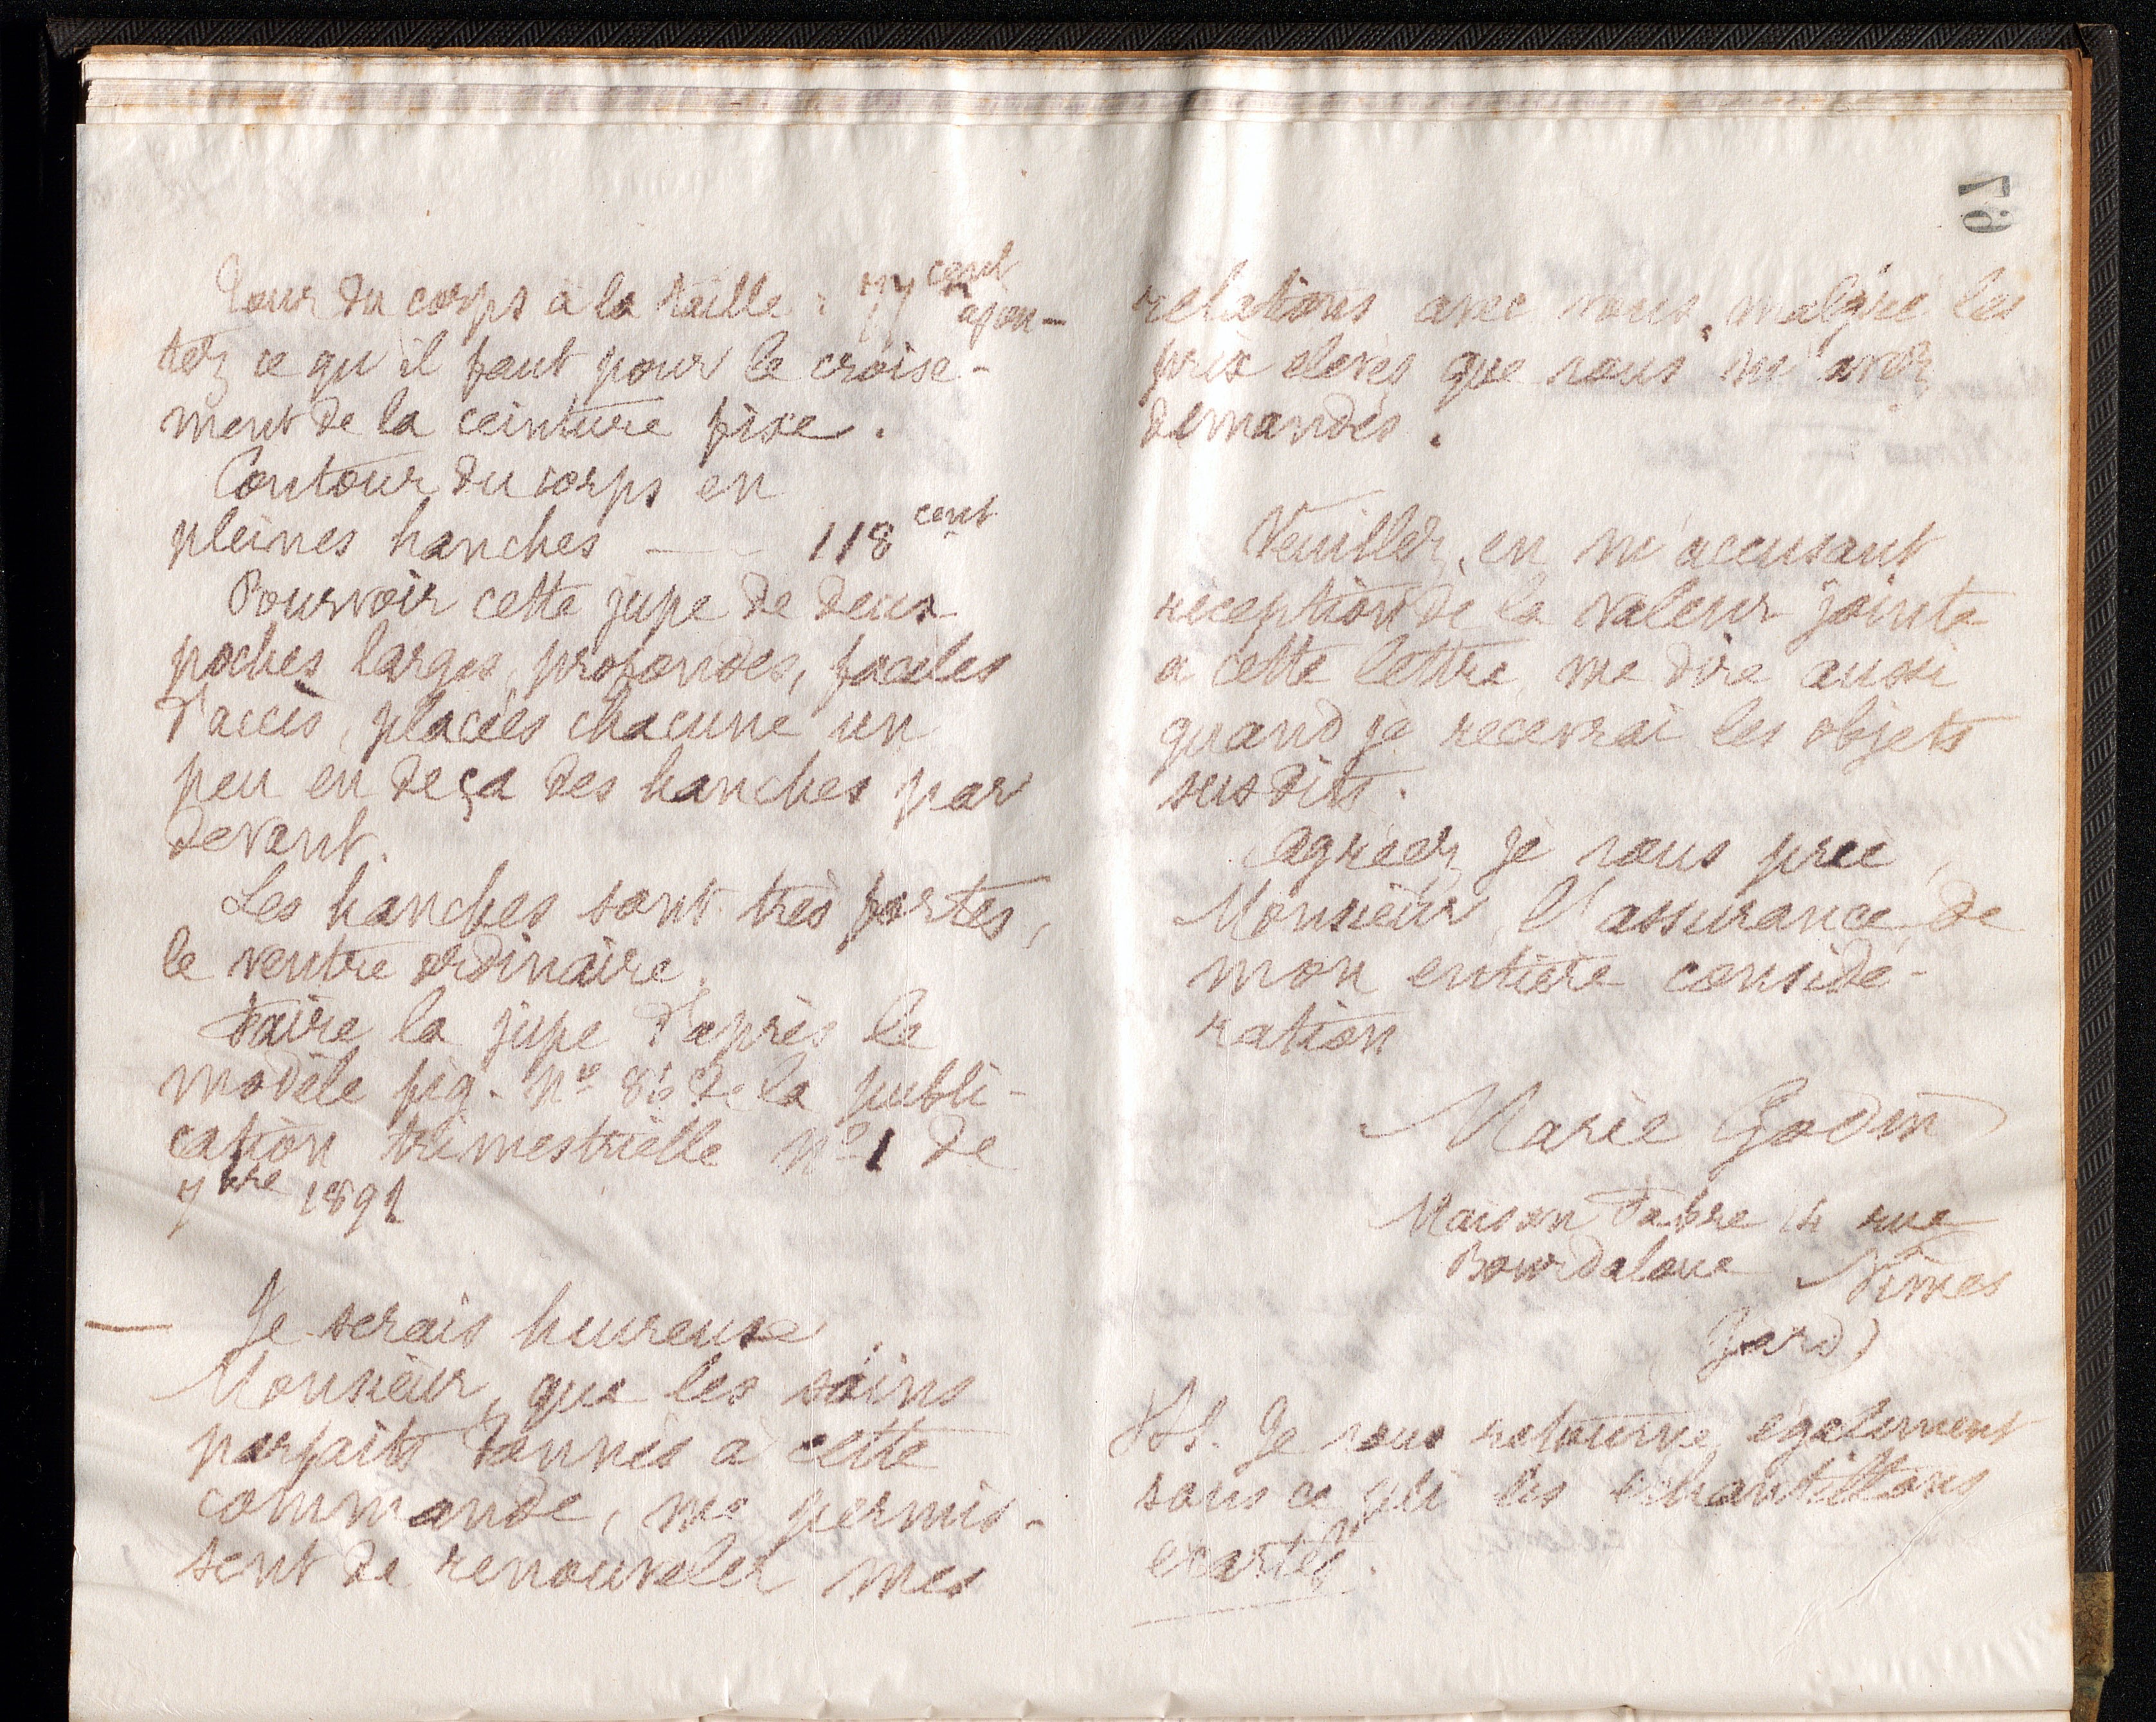 Tour du corps à la taille : 77 cent ajou-
tez ce qu'il faut pour le croise-
ment de la ceinture fixe.
Contour du corps en
pleines hanches — 118 cent
Pourvoir cette jupe de deux
poches larges, profondes, faciles
d'accès, placées chacune un
peu en deça des hanches par
devant.
Les hanches sont très fortes,
le ventre ordinaire.
Faire la jupe d'après le
modèle fig. No de la publi-
cation trimestrielle No 1 de
7bre 1891
— Je serais heureuse,
Monsieur, que les soins
parfaits donnés à cette
commande, me permis-
sent de renouveler mes
67
relations avec vous, malgré les
prix elevés que vous m'avez
demandés.
Veuillez, en m'accusant
réception de la valeur jointe
a cette lettre, me dire aussi
quand je recevrai les objets
susdits.
Agréez, je vous prie,
Monsieur, l'assurance de
mon entière considé-
ration
Marie Godin
Maison Fabre 14 rue
Bourdaloue Nîmes
(Gard)
P.S. Je vous retourne, également
sous ce pli les échantillons
écartés.